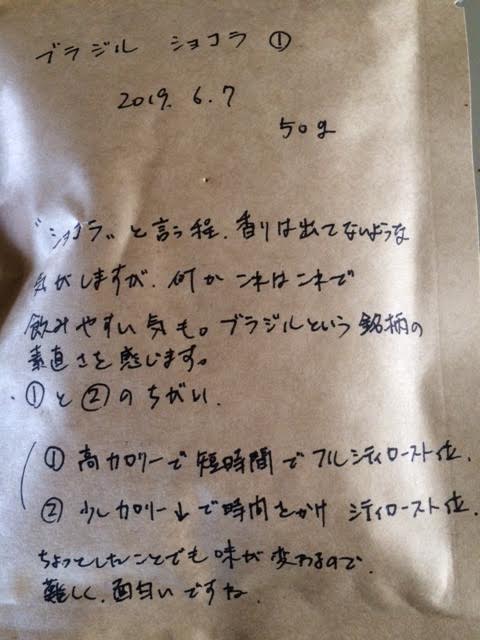 ブラジル ショコラ ①
2019. 6. 7
50g
"ショコラ"と言う程、香りは出てないような
気がしますが、何かコネはコネで
飲みやすい気も。ブラジルという銘柄の
素直さを感じます。
・①と②のちがい、
① 高カロリーで短時間でフルシティロースト位、
② 少しカロリー↓で時間をかけ シティロースト位、
ちょっとしたことでも味が変わるので、
難しく、面白いですね、